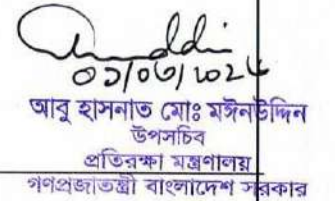 ০১/০৩/২০২৮
আবু হাসনাত মোঃ মঈনউদ্দিন
উপসচিব
প্রতিরক্ষা মন্ত্রণালয়
গণপ্রজাতন্ত্রী বাংলাদেশ সরকার